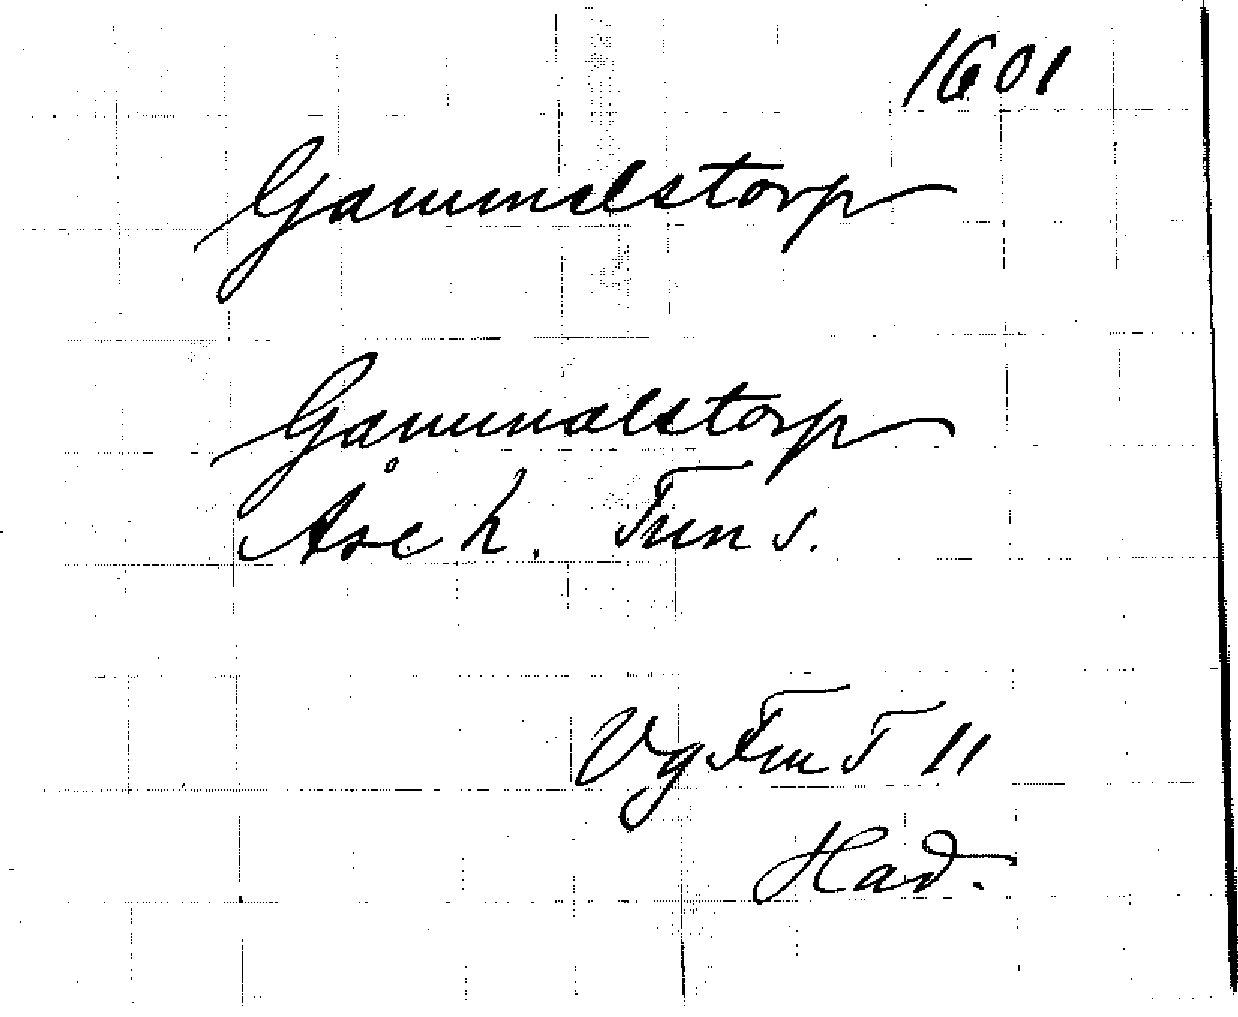 1601
Gammalstorp
Gammalstorp
Åse h. Tun s.
Vg Fmt 11
Had.